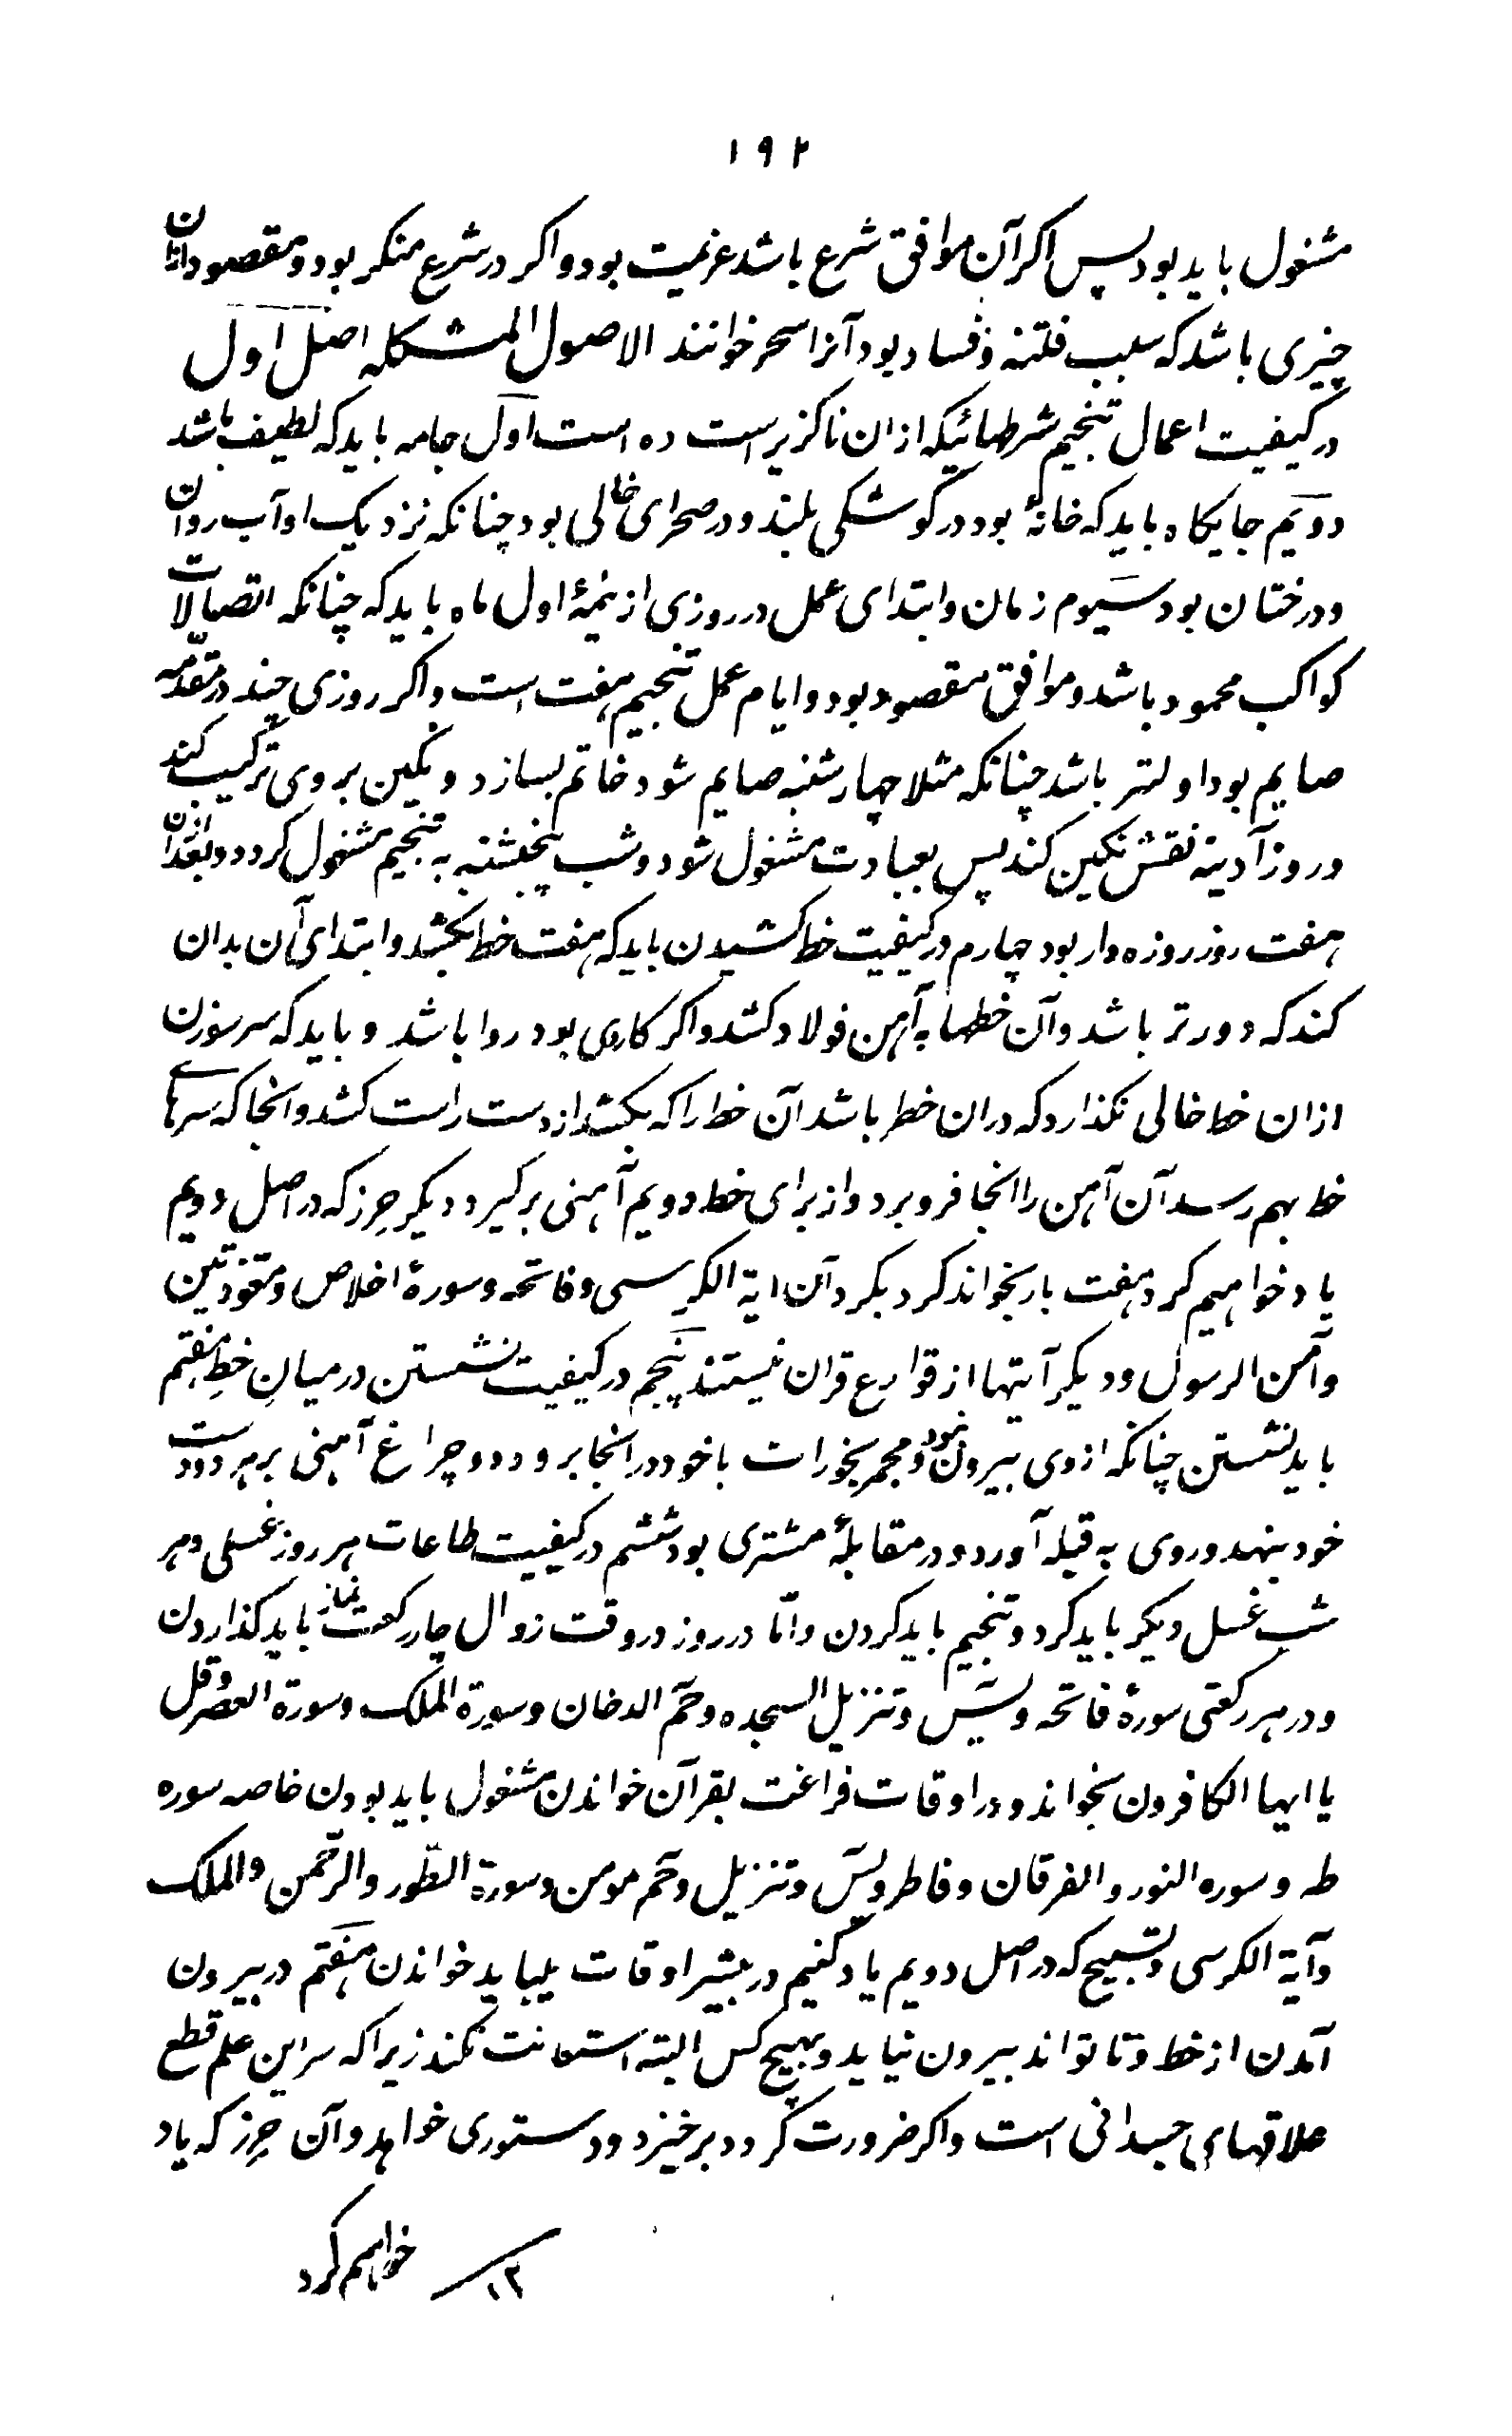 ۱۹۲
مشغول باید بود پس اکر آن موافق شرع باشد عزیمت بود و اکر در شرع منکر بود و مقصود ازان
چیزی باشد که سبب فتنه و فساد بود آنرا سحر خوانند الاصول المشکله اصل اول
در کیفیت اعمال تنجیم شرطهائیکه ازان ناکزیر است ده است اول جامه باید که لطیف باشد
دویم جایکاه باید که خانهٔ بود در کوشکی بلند و در صحرای خالی بود چنانکه نزدیک او آب روان
و درختان بود سیوم زمان و ابتدای عمل در روزی از نیمهٔ اول ماه باید که چنانکه اتصالات
کواکب محمود باشد و موافق مقصود بود و ایام عمل تنجیم هفت است و اکر روزی چند در مقدمه
صایم بود اولتر باشد چنانکه مثلا چهارشنبه صایم شود خاتم بسازد و نکین بر وی ترکیب کند
و روز آدینه نقش نکین کند پس بعبادت مشغول شود و شب پنجشنبه به تنجیم مشغول کردد و بعد ازان
هفت روز روزه دار بود چهارم در کیفیت خط کشیدن باید که هفت خط بکشد و ابتدای آن بدان
کند که دورتر باشد و آن خطها به آهن فولاد کشد و اکر کاردی بود روا باشد و باید که سر سوزن
ازان خط خالی نکذارد که دران خطر باشد آن خط را که بکشد از دست راست کشد و انجا که سرهای
خط بهم رسد آن آهن را انجا فرو برد و از برای خط دویم آهنی برکیرد دیکر حرز که در اصل دویم
یاد خواهیم کرد هفت بار بخواند کرد بکرد آن ایة الکرسی و فاتحه و سورهٔ اخلاص و معوذتین
و آمن الرسول و دیکر آیتها از قوارع قران نیستند پنجم در کیفیت نشستن در میانِ خطِ هفتم
باید نشستن چنانکه از وی بیرون نبود و مجمر بخورات با خود در انجا برد و دو چراغ آهنی بر هر دو دست
خود بنهد و روی به قبله آورد و در مقابلهٔ مشتری بود ششم در کیفیت طاعات هر روز غسلی و هر
شب غسل دیکر باید کرد و تنجیم باید کردن و امّا در روز در وقت زوال چار رکعت نماز باید کذاردن
و در هر رکعتی سورهٔ فاتحه و یس و تنزیل السجده و حم الدخان و سورة الملک و سورة العصر و قل
یا ایها الکافرون بخواند و در اوقات فراغت بقرآن خواندن مشغول باید بودن خاصه سوره
طه و سوره النور و الفرقان و فاطر و یس و تنزیل و حم مومن و سورة الطور و الرحمن و الملک
و آیة الکرسی و تسبیح که در اصل دویم یاد کنیم در بیشتر اوقات بباید خواندن هفتم در بیرون
آمدن از خط و تا تواند بیرون نیاید و بهیچ کس البته استعانت نکند زیرا که سر این علم قطع
علاقهای جسدانی است و اکر ضرورت کردد برخیزد و دستوری خواهد و آن حرز که یاد
خواهیم کرد ۱۲